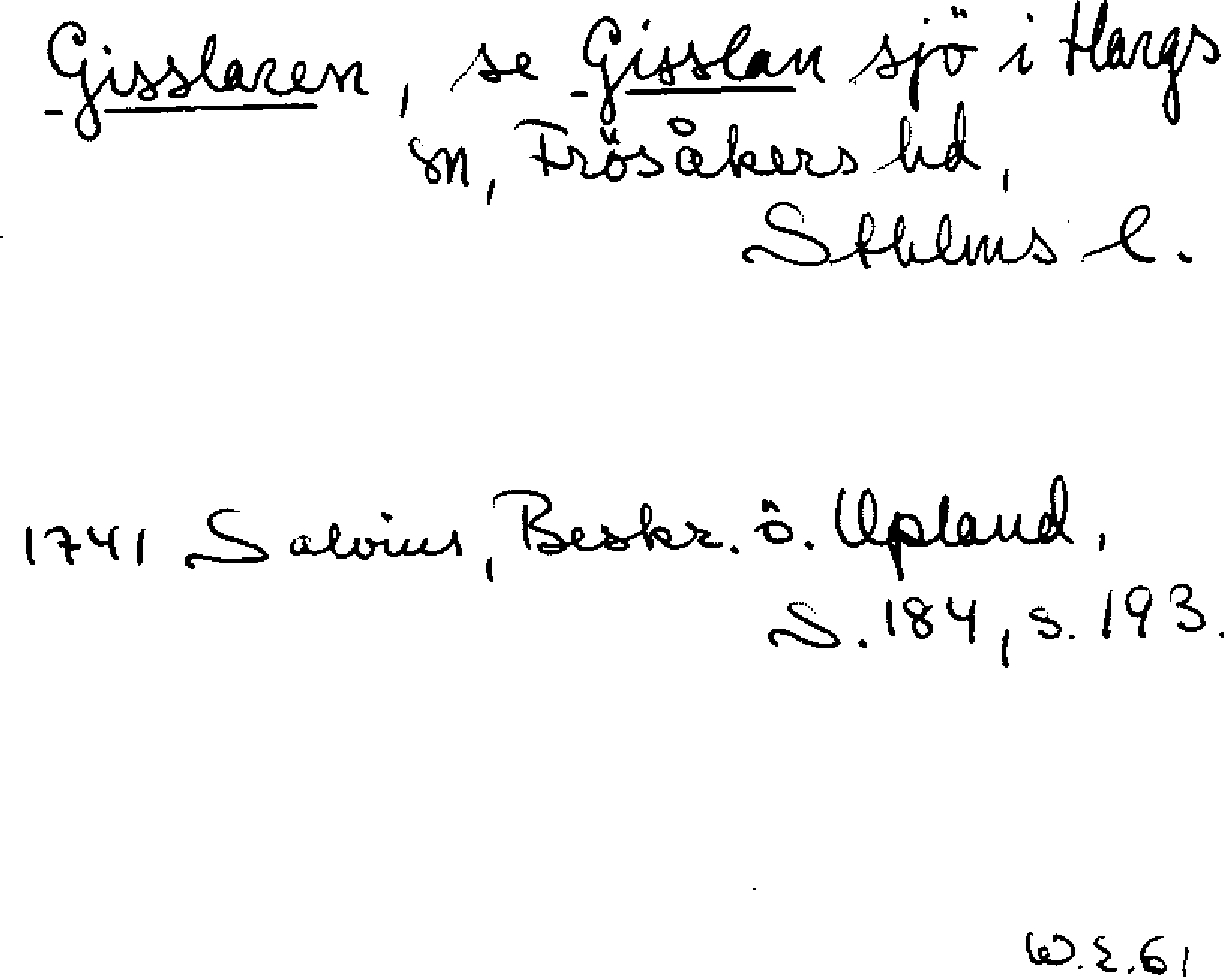 Gisslaren, se Gisslan sjö i Hargs
sn, Frösåkers hd,
Sthlms l.
1741 Salvius, Beskr. ö. Upland,
S. 184, s. 193.
W.E.61